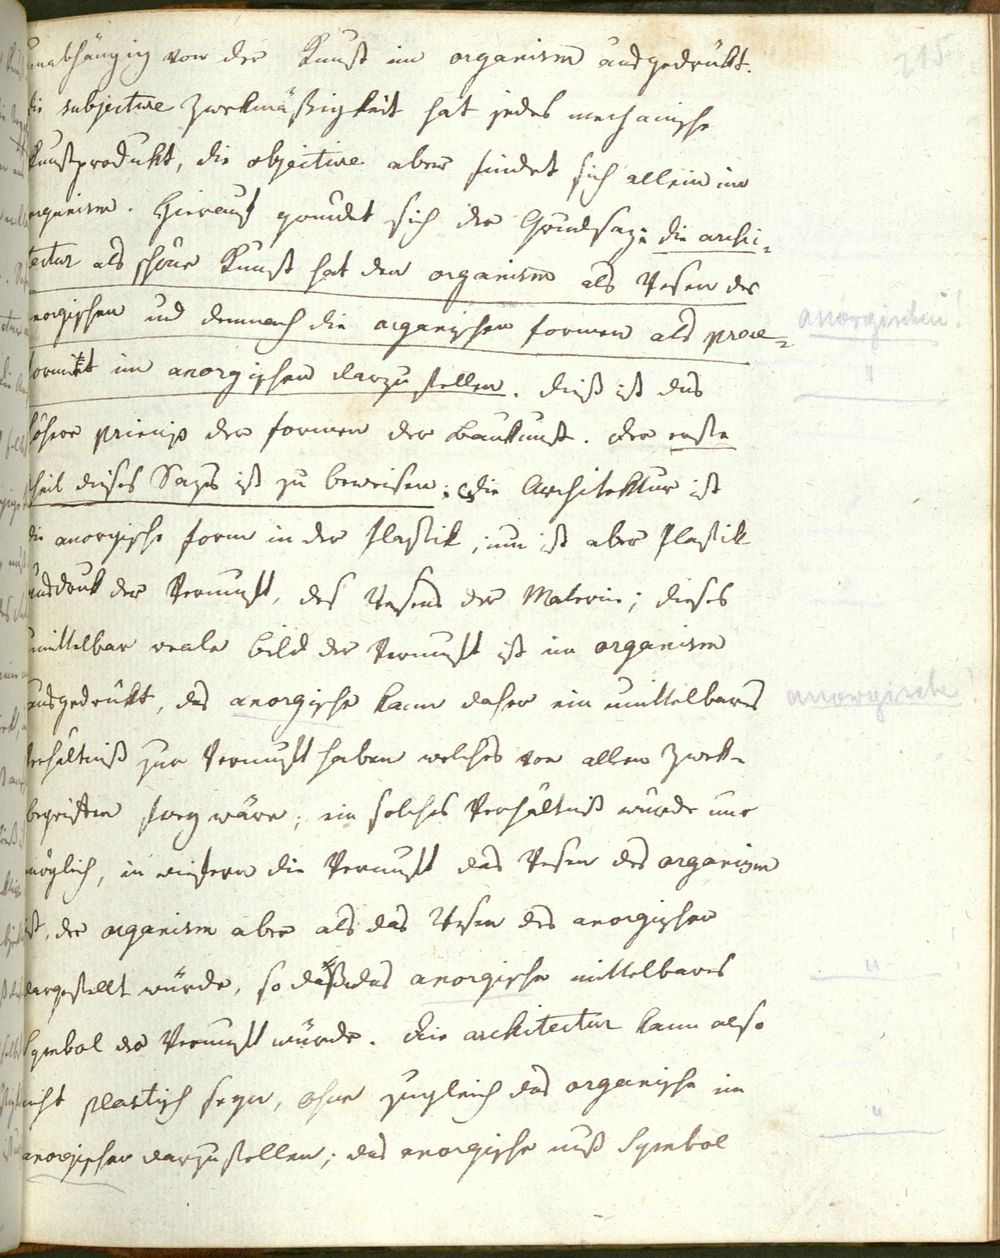 unabhängig von der Kunst im organism ausgedrükt.
die subjective Zwekmäßigkeit hat jedes mechanische
Kunstprodukt, die objective aber findet sich allein im
organism. Hierauf gründet sich der Grundsaz: die archi-
tectur als schöne Kunst hat den organism als Wesen des
anorgischen und demnach die organischen formen als prae-
formirt im anorgischen darzustellen. dieß ist das
höhere princip der formen der Baukunst. der erste
theil dieses Sazes ist zu beweisen: die Architektur ist
die anorgische form in der Plastik, nun ist aber Plastik
ausdruk der Vernunft, des Wesens der Materie; dieses
unmittelbar reale bild der Vernunft ist im organism
ausgedrükt, das anorgische kann daher ein unmittelbares
Verhältniß zur Vernunft haben welches von allen Zwek-
begriffen frey wäre; ein solches Verhältniß würde nur
möglich, in wiefern die Vernunft das Wesen des organism
ist, der organism aber als das Wesen des anorgischen
dargestellt würde, so daß das anorgische mittelbares
Symbol der Vernunft würde. die architectur kann also
nicht plastisch seyn, ohne zugleich das organische im
anorgischen darzustellen; das anorgische muß Symbol
215
anorgischen!
"
anorgische!
"
"